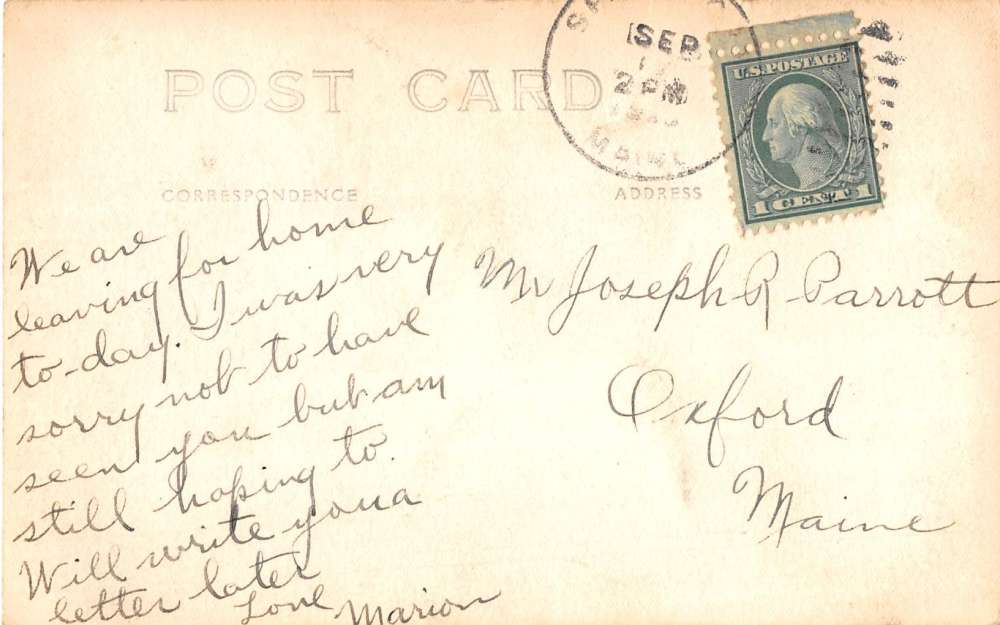 POST CARD
SEP
2 PM
MAINE
U.S. POSTAGE
1 CENT 1
CORRESPONDENCE
ADDRESS
We are
leaving for home
to-day. I was very
sorry not to have
seen you but am
still hoping to.
Will write you a
letter later
Love Marion
Mr Joseph R Parrott
Oxford
Maine